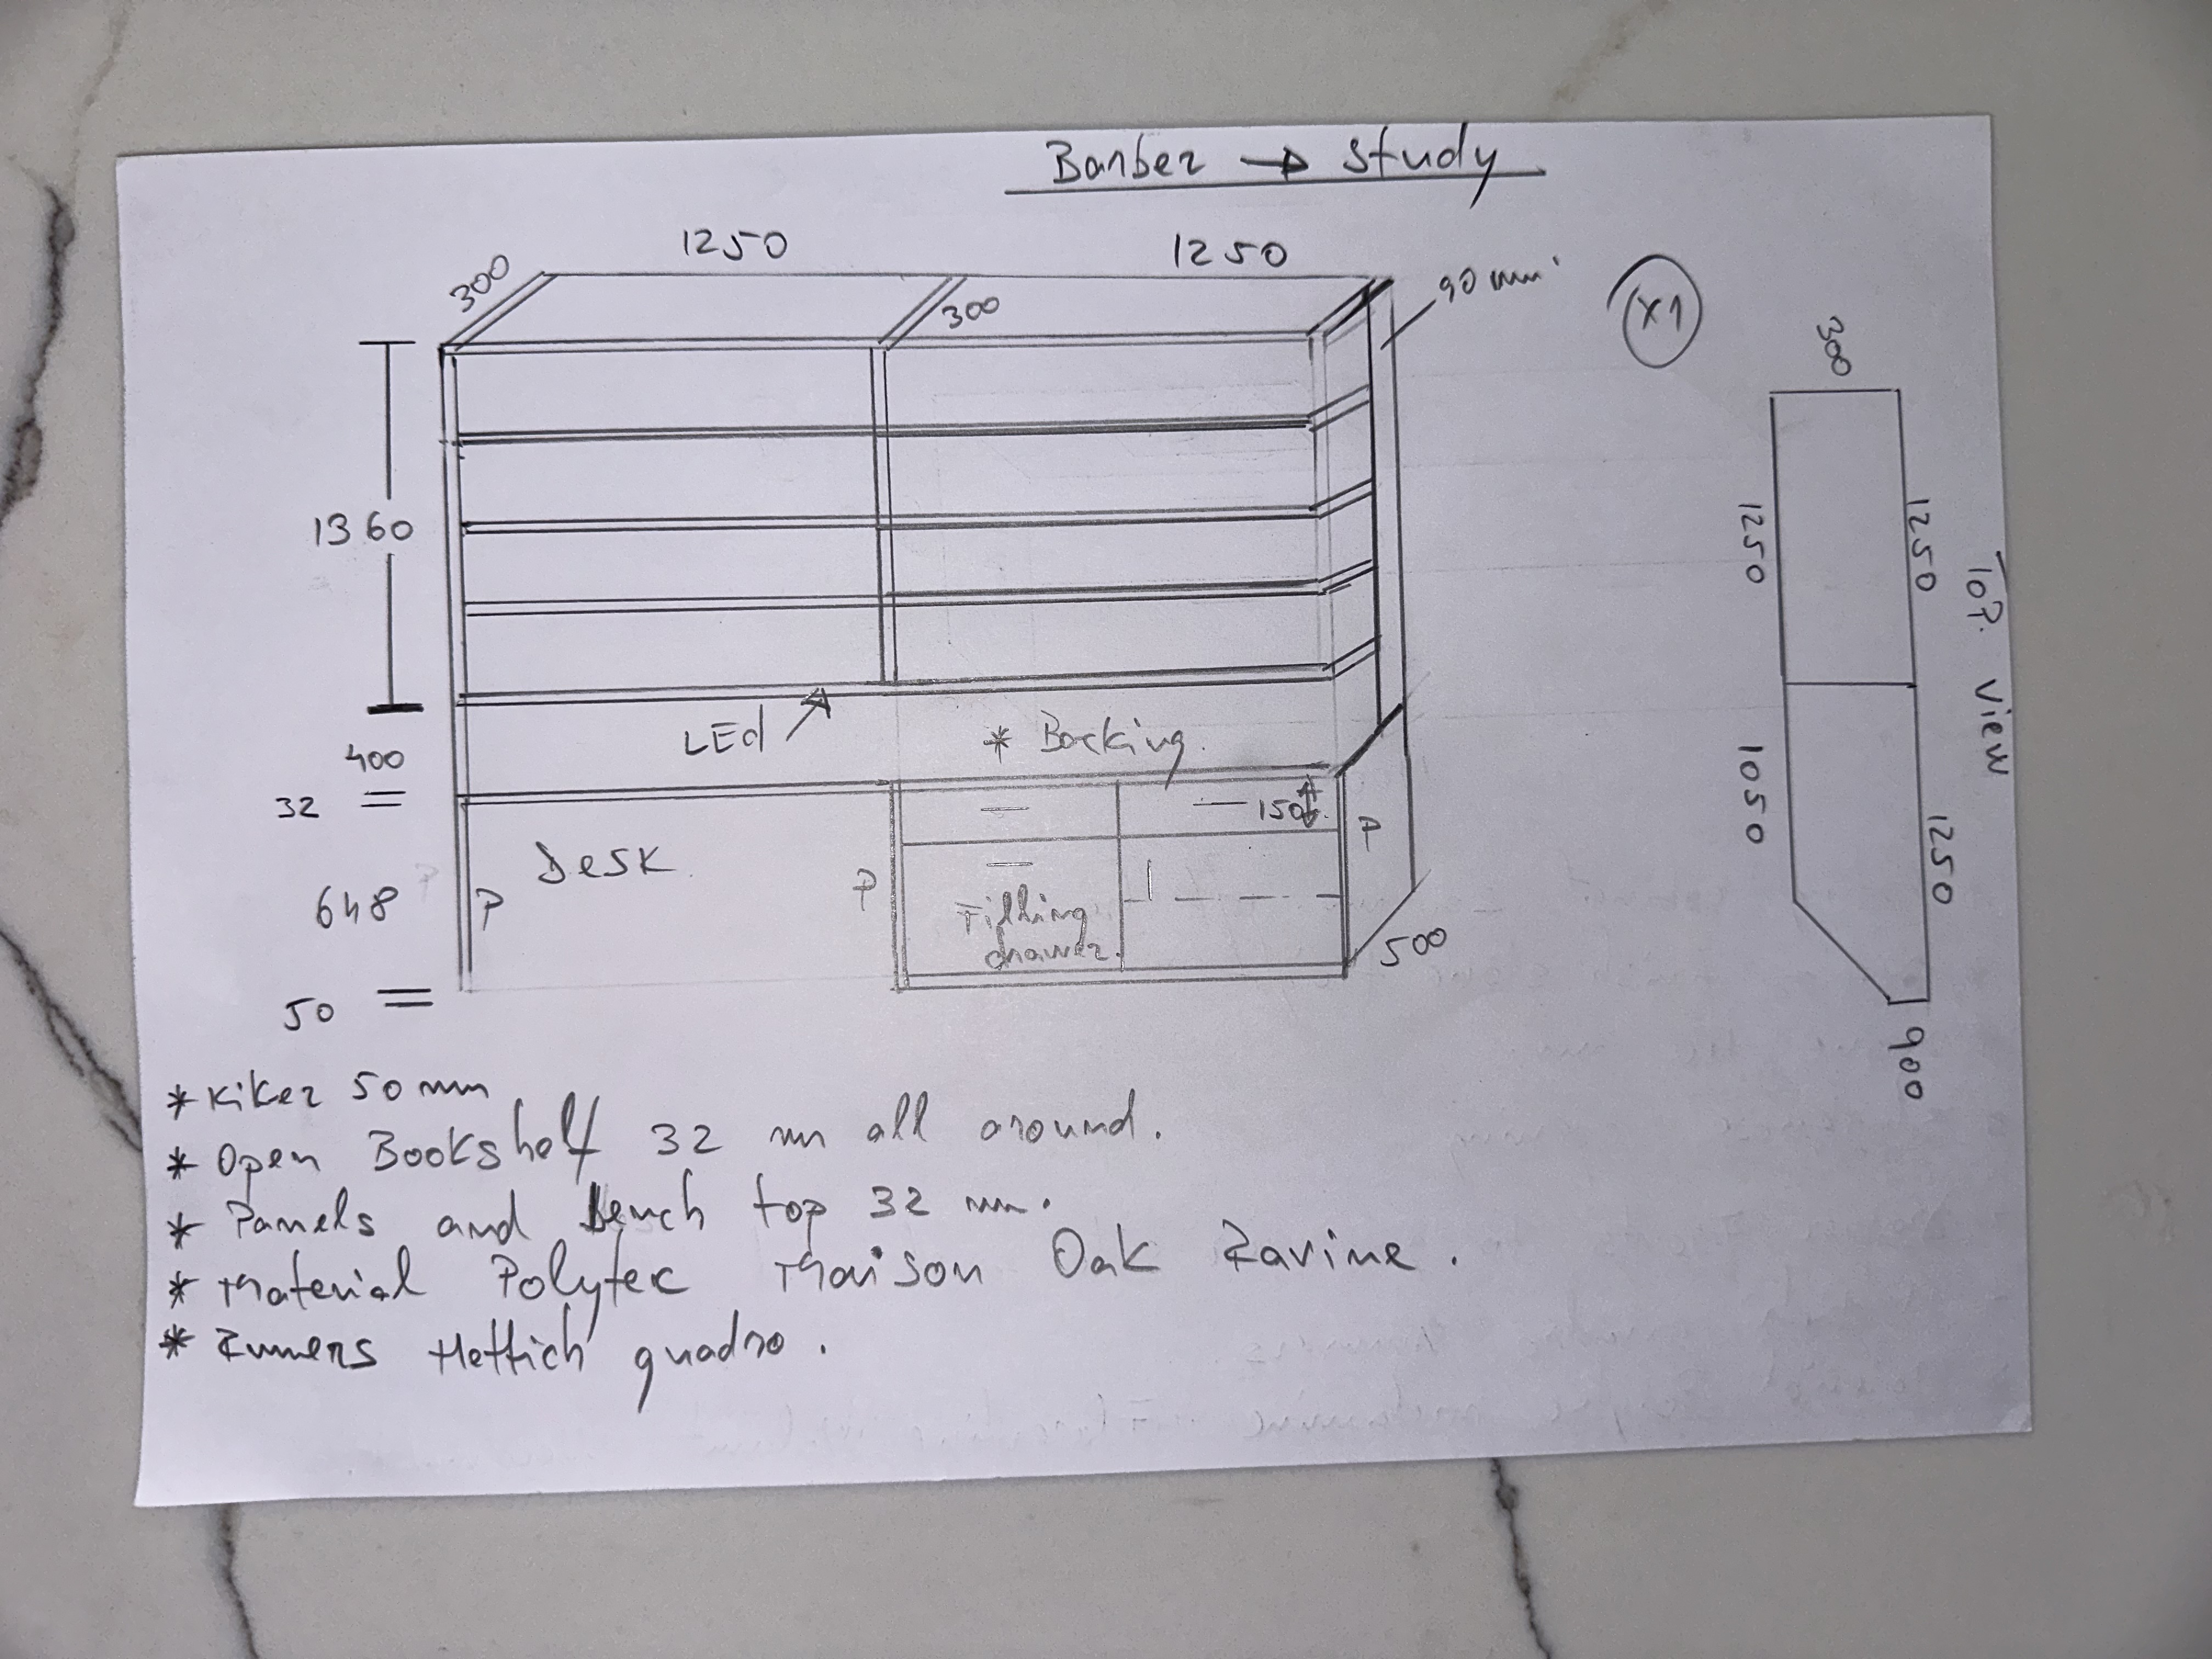 Barber → Study
1250
1250
300
300
90 mm
x1
1360
400
32
648
50
LEd
* Backing.
150
Desk
P
P
P
Filling
drawer.
500
300
1250
1250
1050
1250
900
ToP. View
* Kiker 50 mm
* Open Bookshelf 32 mm all around.
* Panels and bench top 32 mm.
* Material Polytec Maison Oak Ravine.
* Runners Hettich quadro.